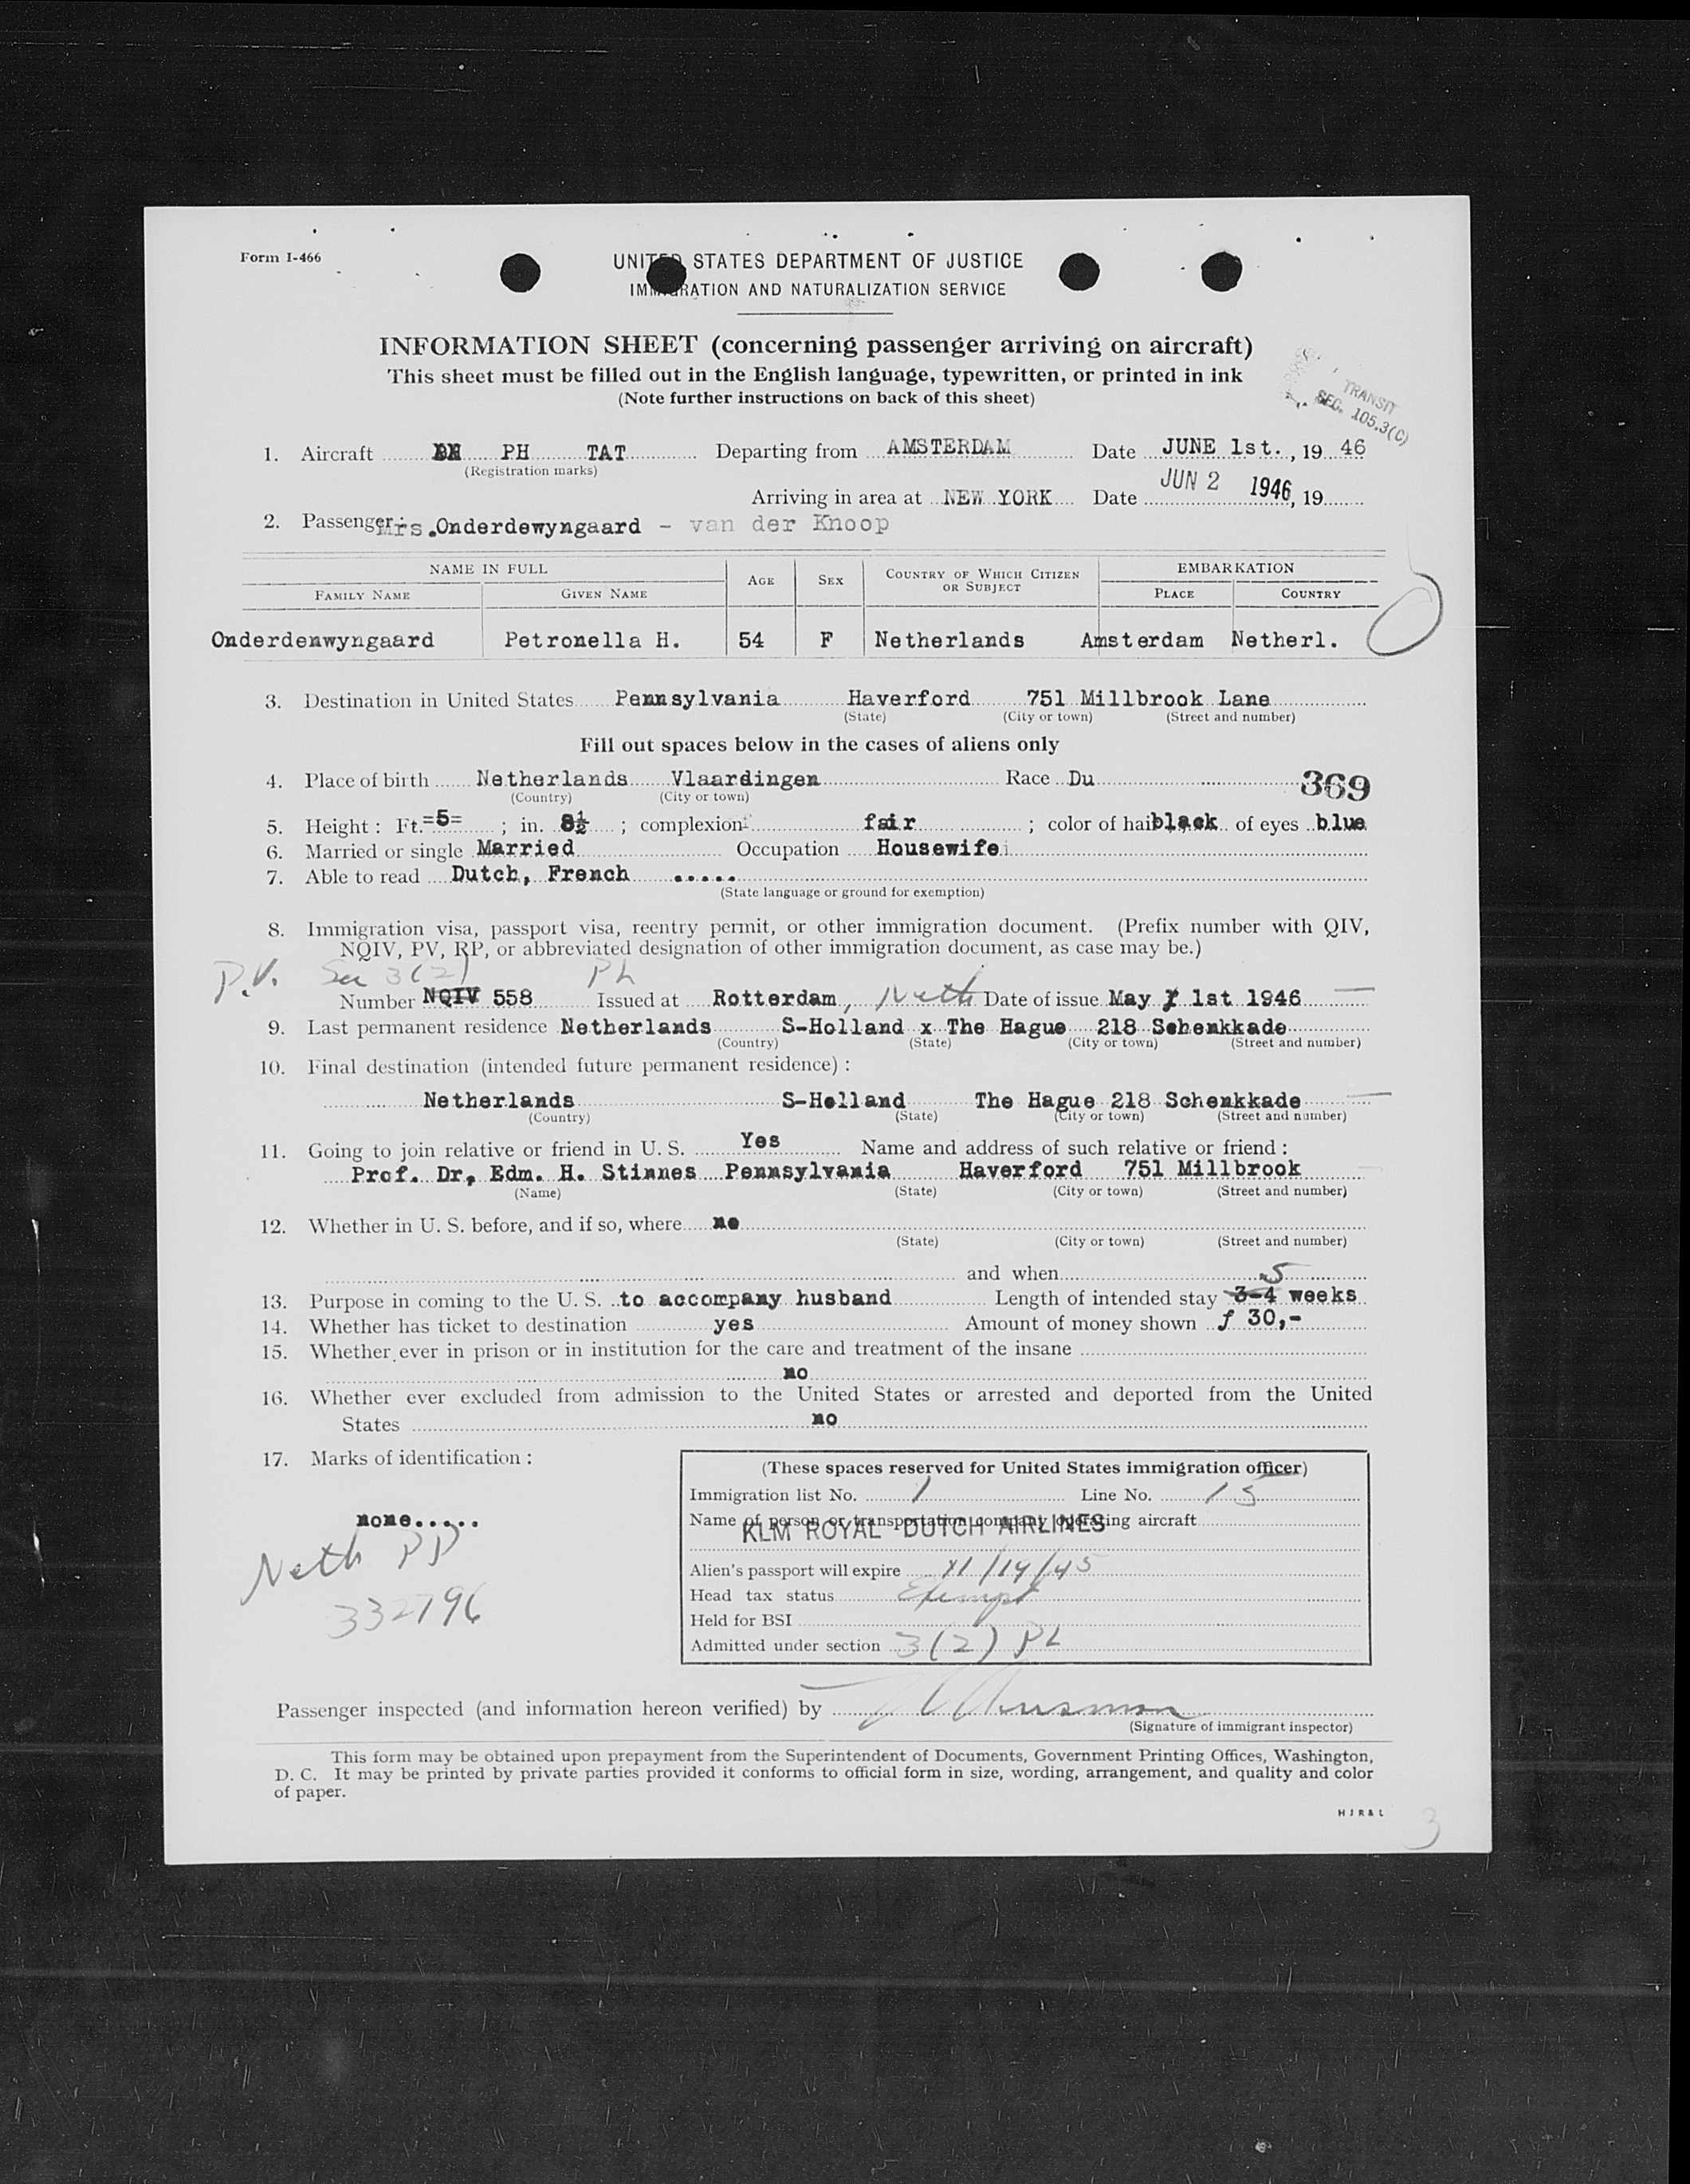 Form I-466
UNITED STATES DEPARTMENT OF JUSTICE
IMMIGRATION AND NATURALIZATION SERVICE
INFORMATION SHEET (concerning passenger arriving on aircraft)
This sheet must be filled out in the English language, typewritten, or printed in ink
(Note further instructions on back of this sheet)
TRANSIT
SEC. 105.3(C)
1. Aircraft PH TAT Departing from AMSTERDAM Date JUNE 1st., 19 46
(Registration marks)
Arriving in area at NEW YORK Date JUN 2 1946, 19
2. Passenger: Mrs. Onderdewyngaard - van der Knoop
NAME IN FULL AGE SEX COUNTRY OF WHICH CITIZEN OR SUBJECT EMBARKATION
FAMILY NAME GIVEN NAME PLACE COUNTRY
Onderdenwyngaard Petronella H. 54 F Netherlands Amsterdam Netherl.
3. Destination in United States Pennsylvania Haverford 751 Millbrook Lane
(State) (City or town) (Street and number)
Fill out spaces below in the cases of aliens only
4. Place of birth Netherlands Vlaardingen Race Du
369
(Country) (City or town)
5. Height: Ft. =5= ; in. 8½ ; complexion fair ; color of hair black of eyes blue
6. Married or single Married Occupation Housewife
7. Able to read Dutch, French .....
(State language or ground for exemption)
8. Immigration visa, passport visa, reentry permit, or other immigration document. (Prefix number with QIV,
NQIV, PV, RP, or abbreviated designation of other immigration document, as case may be.)
P.V. Sec 3(2) PL
Number NQIV 558 Issued at Rotterdam, Neth Date of issue May 1st 1946
9. Last permanent residence Netherlands S-Holland x The Hague 218 Schenkkade
(Country) (State) (City or town) (Street and number)
10. Final destination (intended future permanent residence):
Netherlands S-Holland The Hague 218 Schenkkade
(Country) (State) (City or town) (Street and number)
11. Going to join relative or friend in U. S. Yes Name and address of such relative or friend:
Prof. Dr, Edm. H. Stinnes Pennsylvania Haverford 751 Millbrook
(Name) (State) (City or town) (Street and number)
12. Whether in U. S. before, and if so, where no
(State) (City or town) (Street and number)
and when
5
13. Purpose in coming to the U. S. to accompany husband Length of intended stay 3-4 weeks
14. Whether has ticket to destination yes Amount of money shown f 30,-
15. Whether ever in prison or in institution for the care and treatment of the insane
no
16. Whether ever excluded from admission to the United States or arrested and deported from the United
States no
17. Marks of identification:
none.....
Neth PP
332796
(These spaces reserved for United States immigration officer)
Immigration list No. 1 Line No. 15
Name of person or transportation company operating aircraft
KLM ROYAL DUTCH AIRLINES
Alien's passport will expire 11/14/45
Head tax status Exempt
Held for BSI
Admitted under section 3(2) PL
Passenger inspected (and information hereon verified) by
(Signature of immigrant inspector)
This form may be obtained upon prepayment from the Superintendent of Documents, Government Printing Offices, Washington,
D. C. It may be printed by private parties provided it conforms to official form in size, wording, arrangement, and quality and color
of paper.
H J R & L
3